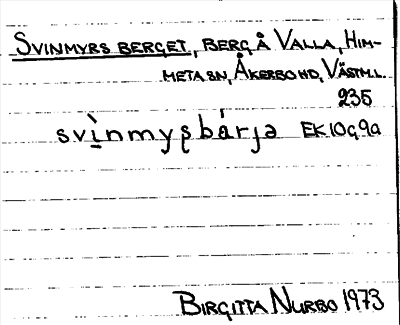 SVINMYRSBERGET, BERG Å VALLA, HIM-
METASN, ÅKERBOHD, VÄSTM.L.
235
svì̱nmyʂbárjə EK 10G9a
BIRGITTA NURBO 1973